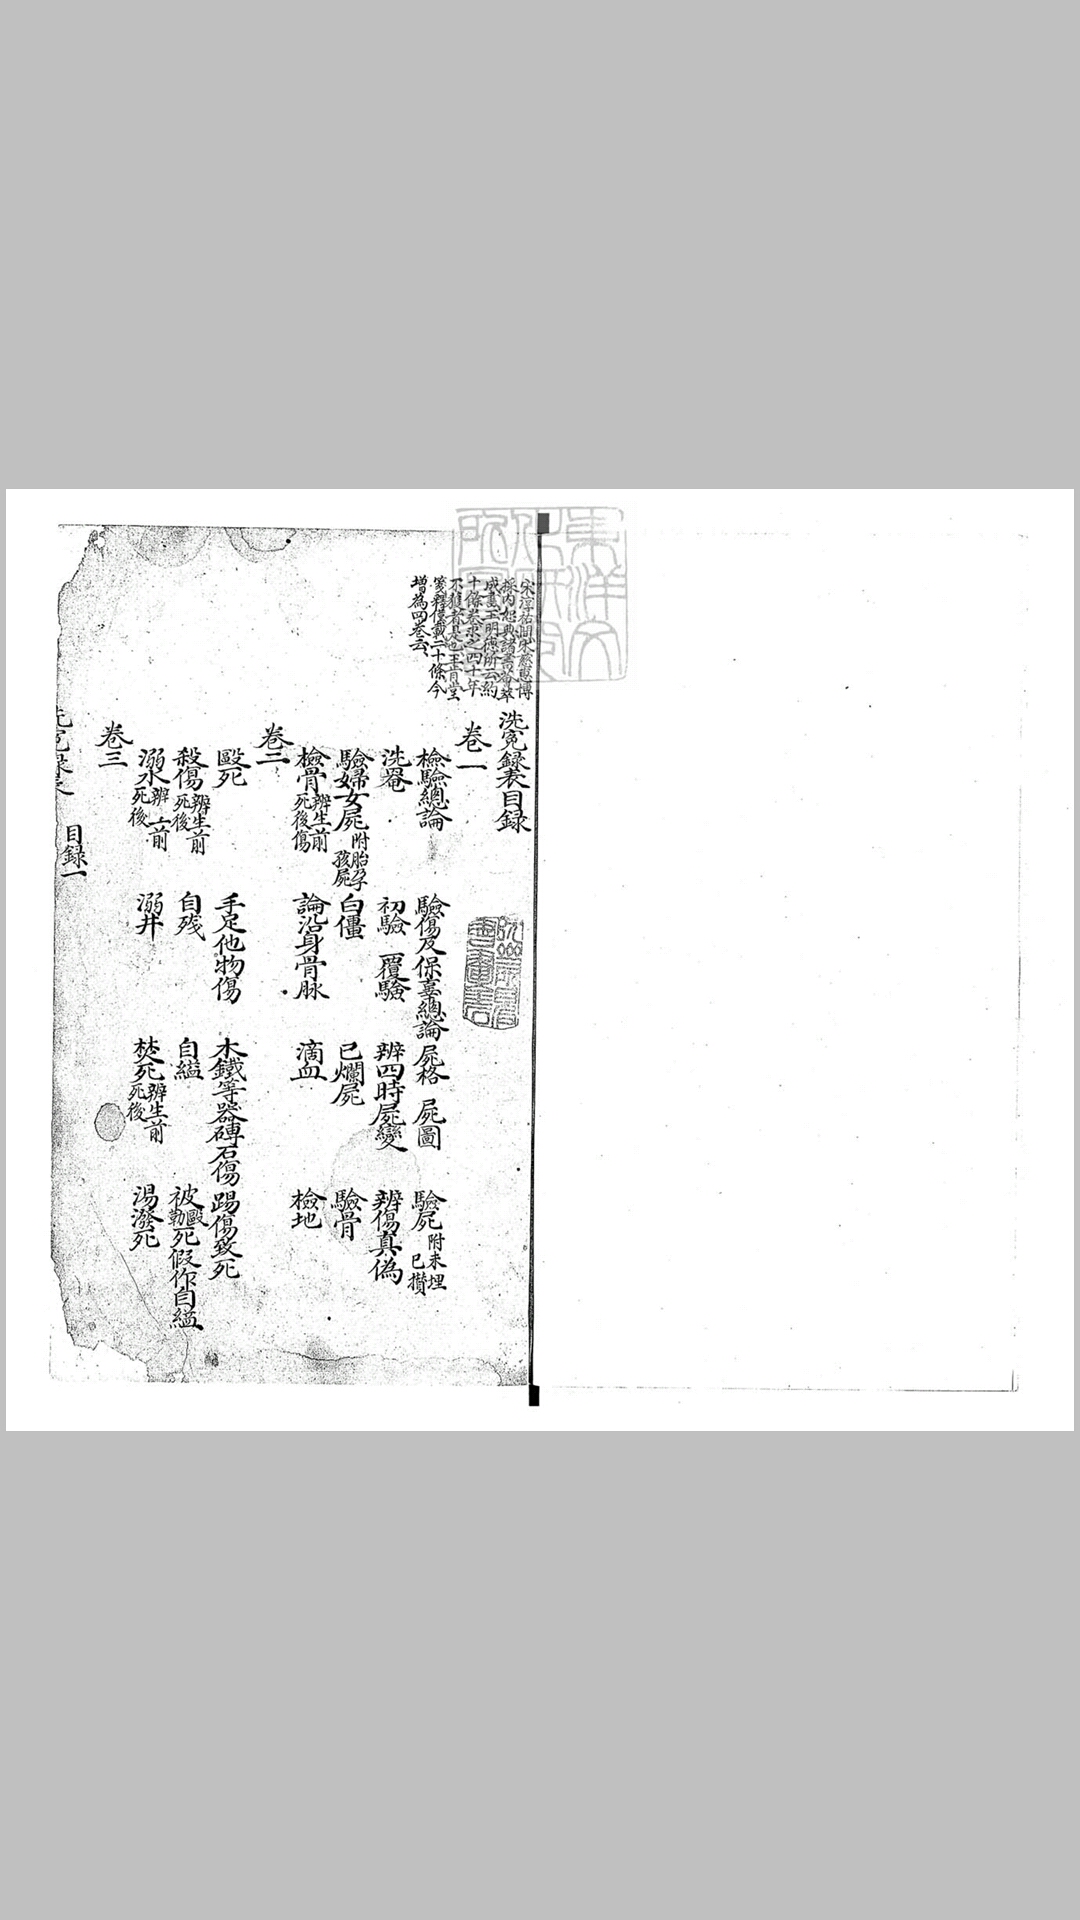 宋淳祐間宋慈惠博
採內恕典諸書薈萃
成書王明德所云約
十條慕求之四十年
不獲者是也王肯堂
箋釋僅載二十條今
增為四卷云
洗冤錄表目録
卷一
檢驗總論 驗傷及保辜總論 屍格 屍圖 驗屍附未埋已攢
洗罨 初驗 覆驗 辨四時屍變 辨傷真偽
驗婦女屍附胎孕孩屍 白僵 已爛屍 驗骨
檢骨辨生前死後傷 論沿身骨脉 滴血 檢地
卷二
毆死 手足他物傷 木鐵等器磚石傷 踢傷致死
殺傷辨生前死後 自殘 自縊 被毆勒死假作自縊
溺水辨生前死後 溺井 焚死辨生前死後 湯潑死
卷三
目録一